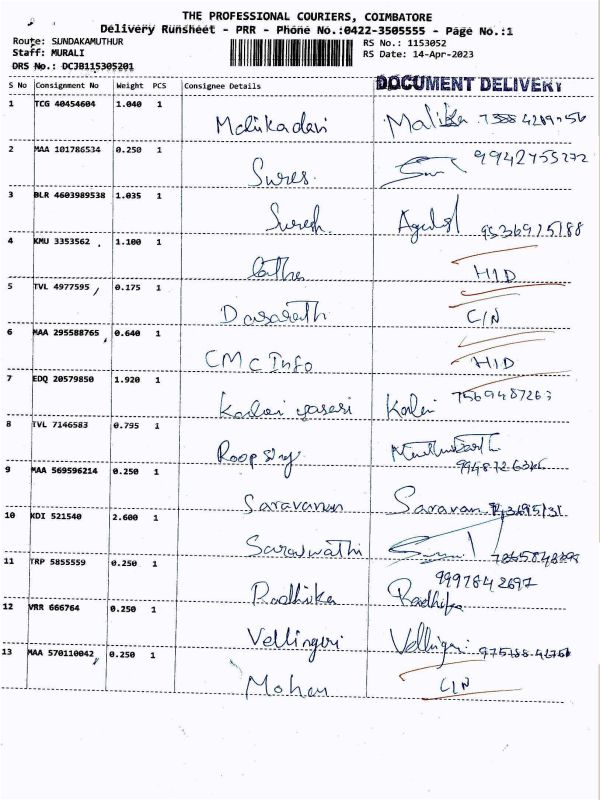 THE PROFESSIONAL COURIERS, COIMBATORE
Delivery Runsheet - PRR - Phone No.:0422-3505555 - Page No.:1
Route: SUNDAKAMUTHUR
RS No.: 1153052
Staff: MURALI
RS Date: 14-Apr-2023
DRS No.: DCJB115305201
S No Consignment No Weight PCS Consignee Details DOCUMENT DELIVERY
1 TCG 40454604 1.040 1
Malika
2 MAA 101786534 0.250 1
Sures.
3 BLR 4603989538 1.035 1
Suresh
4 KMU 3353562 1.100 1
H1D
5 TVL 4977595 0.175 1
Dasarath C/N
6 MAA 295588765 0.640 1
CMC Info H1D
7 EDQ 20579850 1.920 1
8 TVL 7146583 0.795 1
9 MAA 569596214 0.250 1
Saravanan Saravan
10 KDI 521540 2.600 1
Saraswathi
11 TRP 5855559 0.250 1
9997842697
Radhika Radhika
12 VRR 666764 0.250 1
Vellingeri
13 MAA 570110042 0.250 1
Mohan C/N